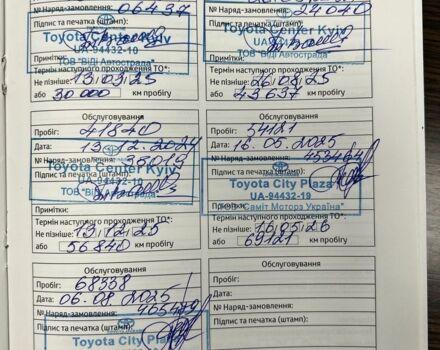 № Наряд-замовлення: 06437
Підпис та печатка (штамп):
Toyota Center Kyiv
UA-94432-10
ТОВ "ВіДі Автострада"
Примітки:
Термін наступного проходження ТО*:
Не пізніше: 13.03.25
або 30 000 км пробігу
№ Наряд-замовлення: 24040
Підпис та печатка (штамп):
Toyota Center Kyiv
ТОВ "ВіДі Автострада"
Примітки:
Термін наступного проходження ТО*:
Не пізніше: 26.03.25
або 43 637 км пробігу
Обслуговування
Пробіг: 41840
Дата: 13.12.2024
№ Наряд-замовлення: 35019
Підпис та печатка (штамп):
Toyota Center Kyiv
UA-94432-10
ТОВ "ВіДі Автострада"
Примітки:
Термін наступного проходження ТО*:
Не пізніше: 13.12.25
або 56 840 км пробігу
Обслуговування
Пробіг: 54121
Дата: 16.05.2025
№ Наряд-замовлення: 453464
Підпис та печатка (штамп):
Toyota City Plaza
UA-94432-19
ТОВ "Саміт Моторз Україна"
Примітки:
Термін наступного проходження ТО*:
Не пізніше: 16.05.26
або 69121 км пробігу
Обслуговування
Пробіг: 68338
Дата: 06.08.2025
№ Наряд-замовлення: 465479
Підпис та печатка (штамп):
Toyota City Plaza
Обслуговування
Пробіг:
Дата:
№ Наряд-замовлення:
Підпис та печатка (штамп):